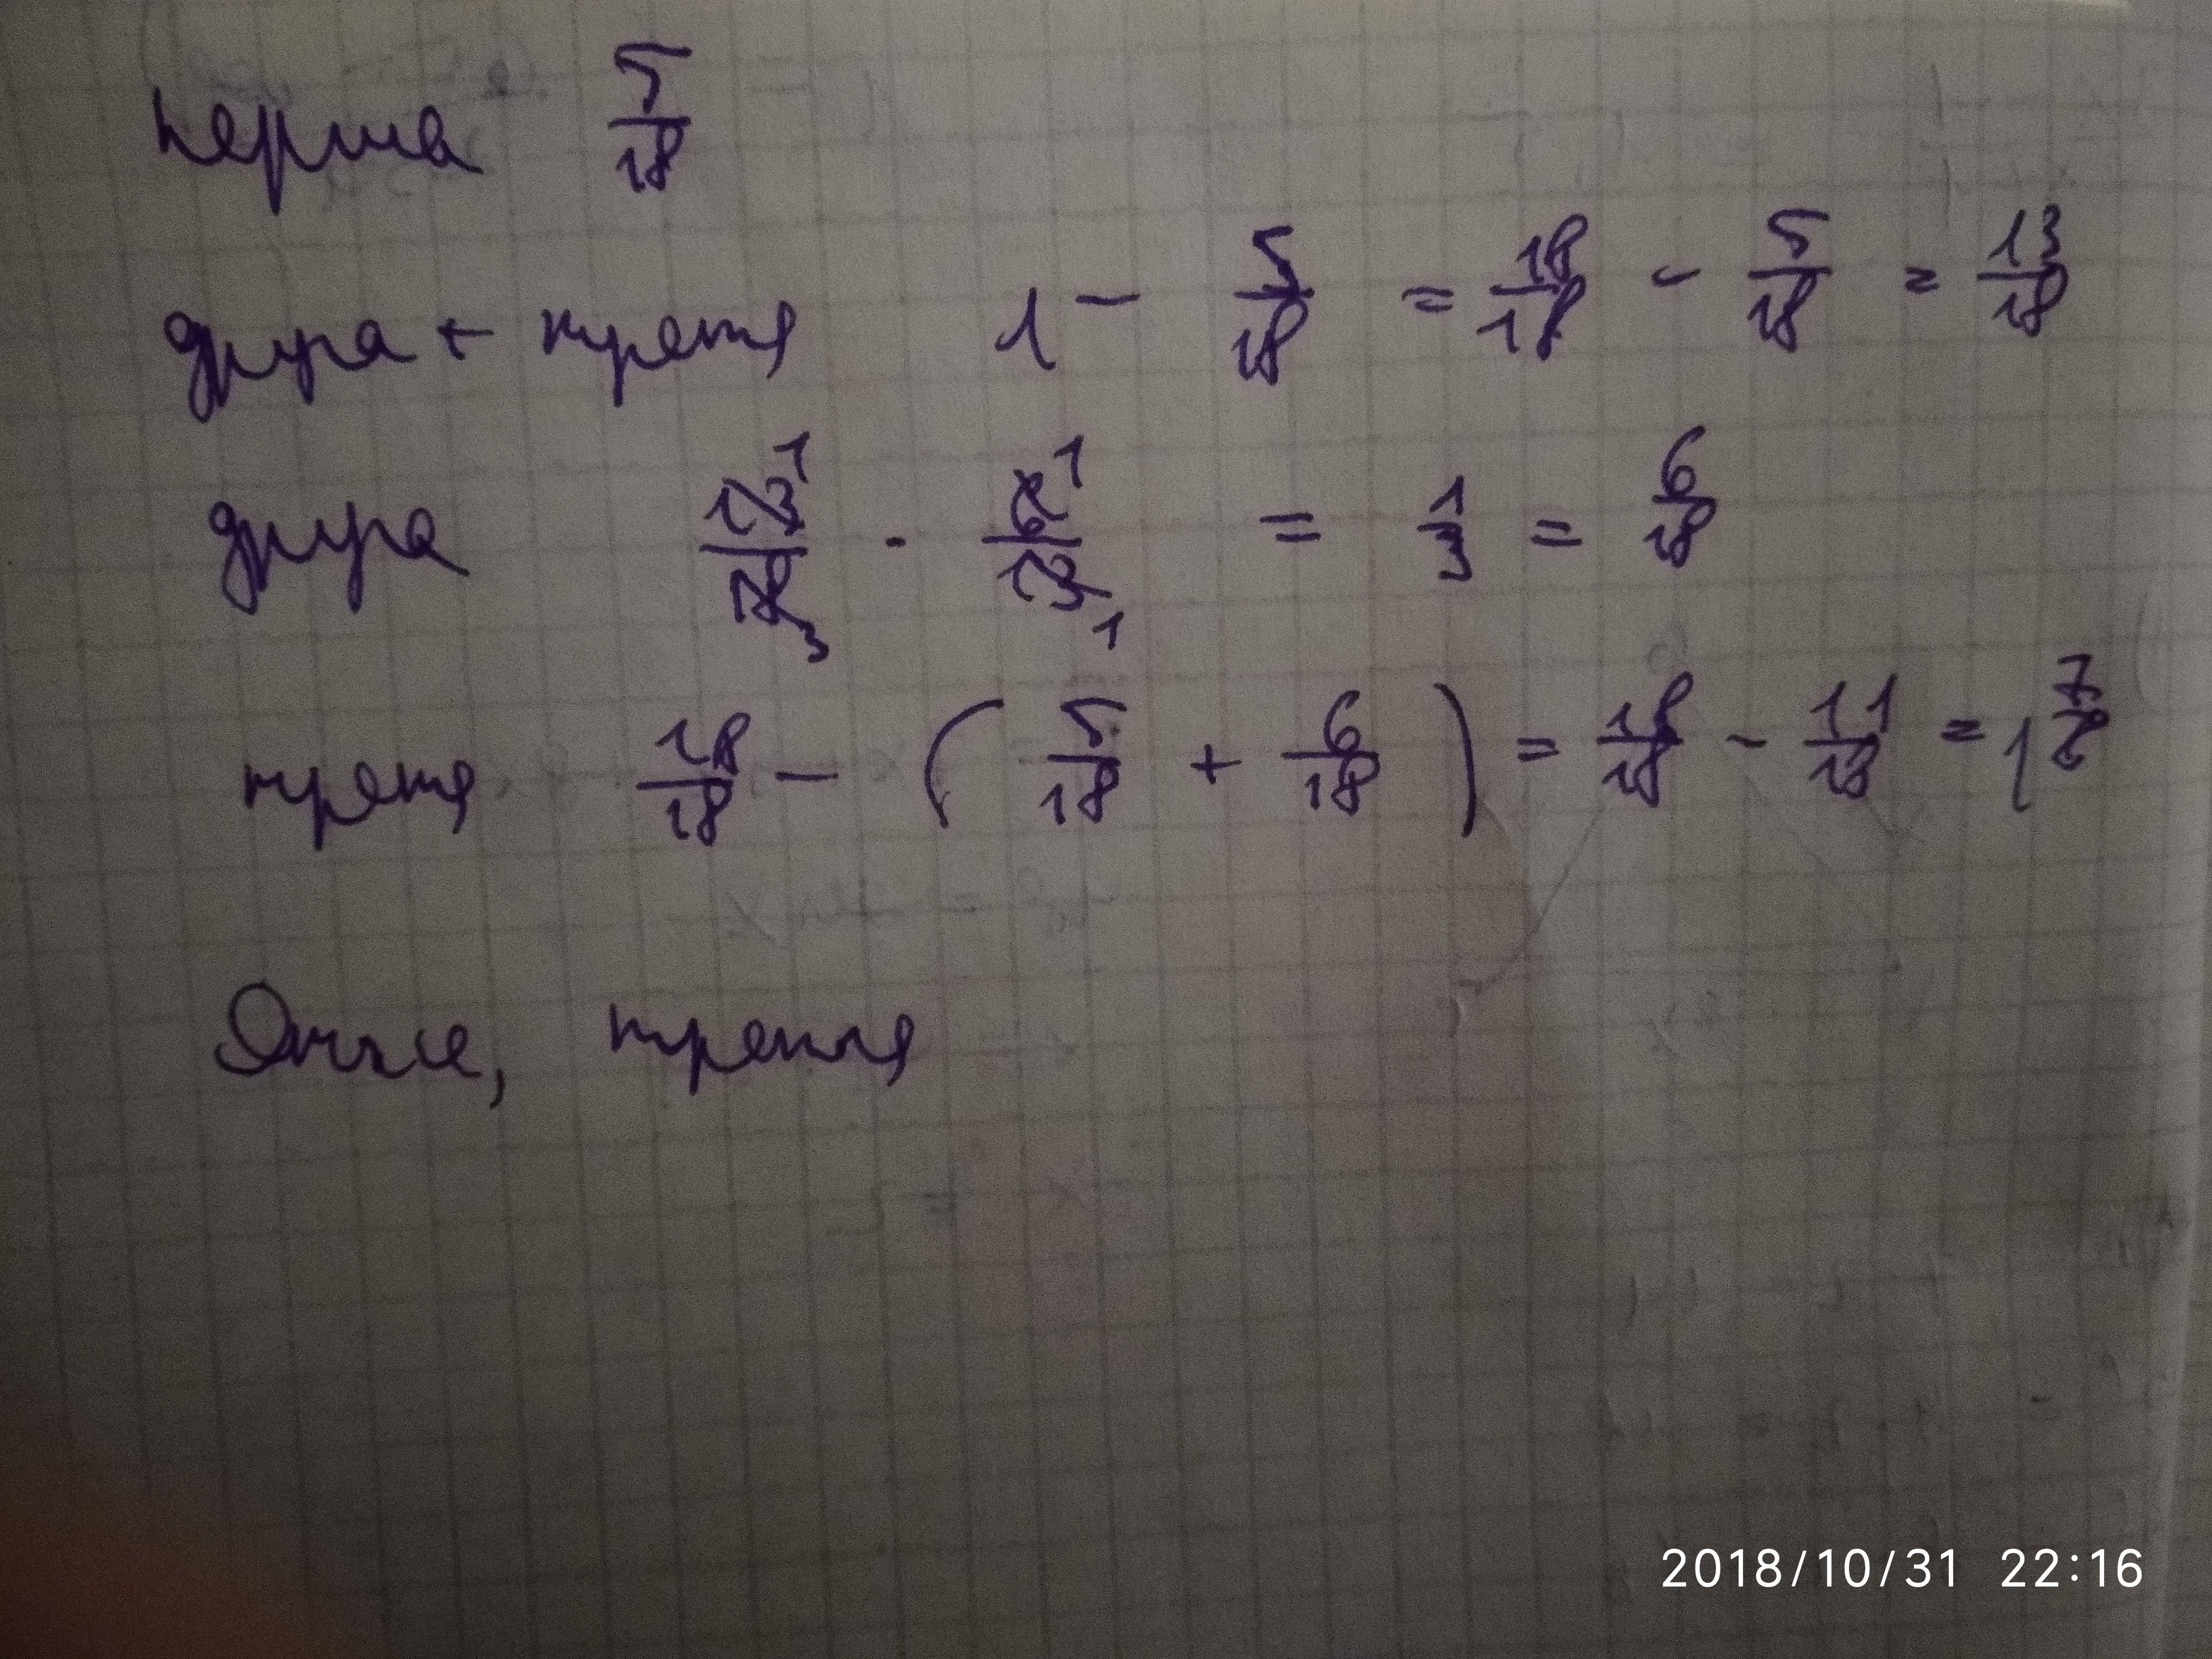 перша 5/18
друга + третя 1 - 5/18 = 18/18 - 5/18 = 13/18
друга 13/18 · 6/13 = 1/3 = 6/18
третя 18/18 - (5/18 + 6/18) = 18/18 - 11/18 = 7/18
Отже, третя
2018/10/31 22:16